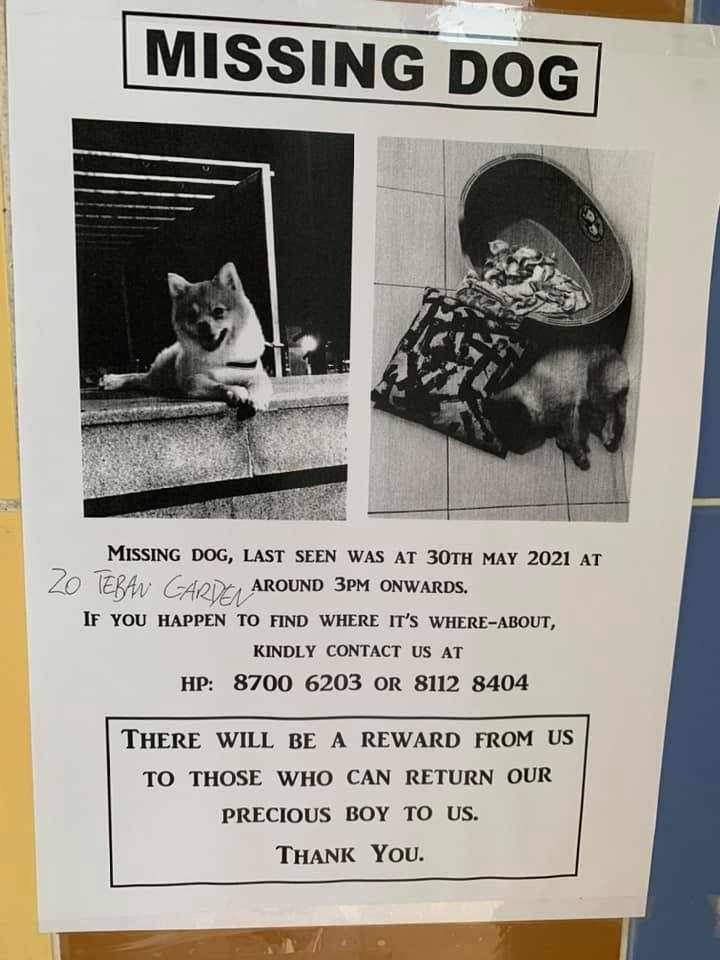 MISSING DOG
MISSING DOG, LAST SEEN WAS AT 30TH MAY 2021 AT
20 TEBAN GARDEN AROUND 3PM ONWARDS.
IF YOU HAPPEN TO FIND WHERE IT'S WHERE-ABOUT,
KINDLY CONTACT US AT
HP: 8700 6203 OR 8112 8404
THERE WILL BE A REWARD FROM US
TO THOSE WHO CAN RETURN OUR
PRECIOUS BOY TO US.
THANK YOU.